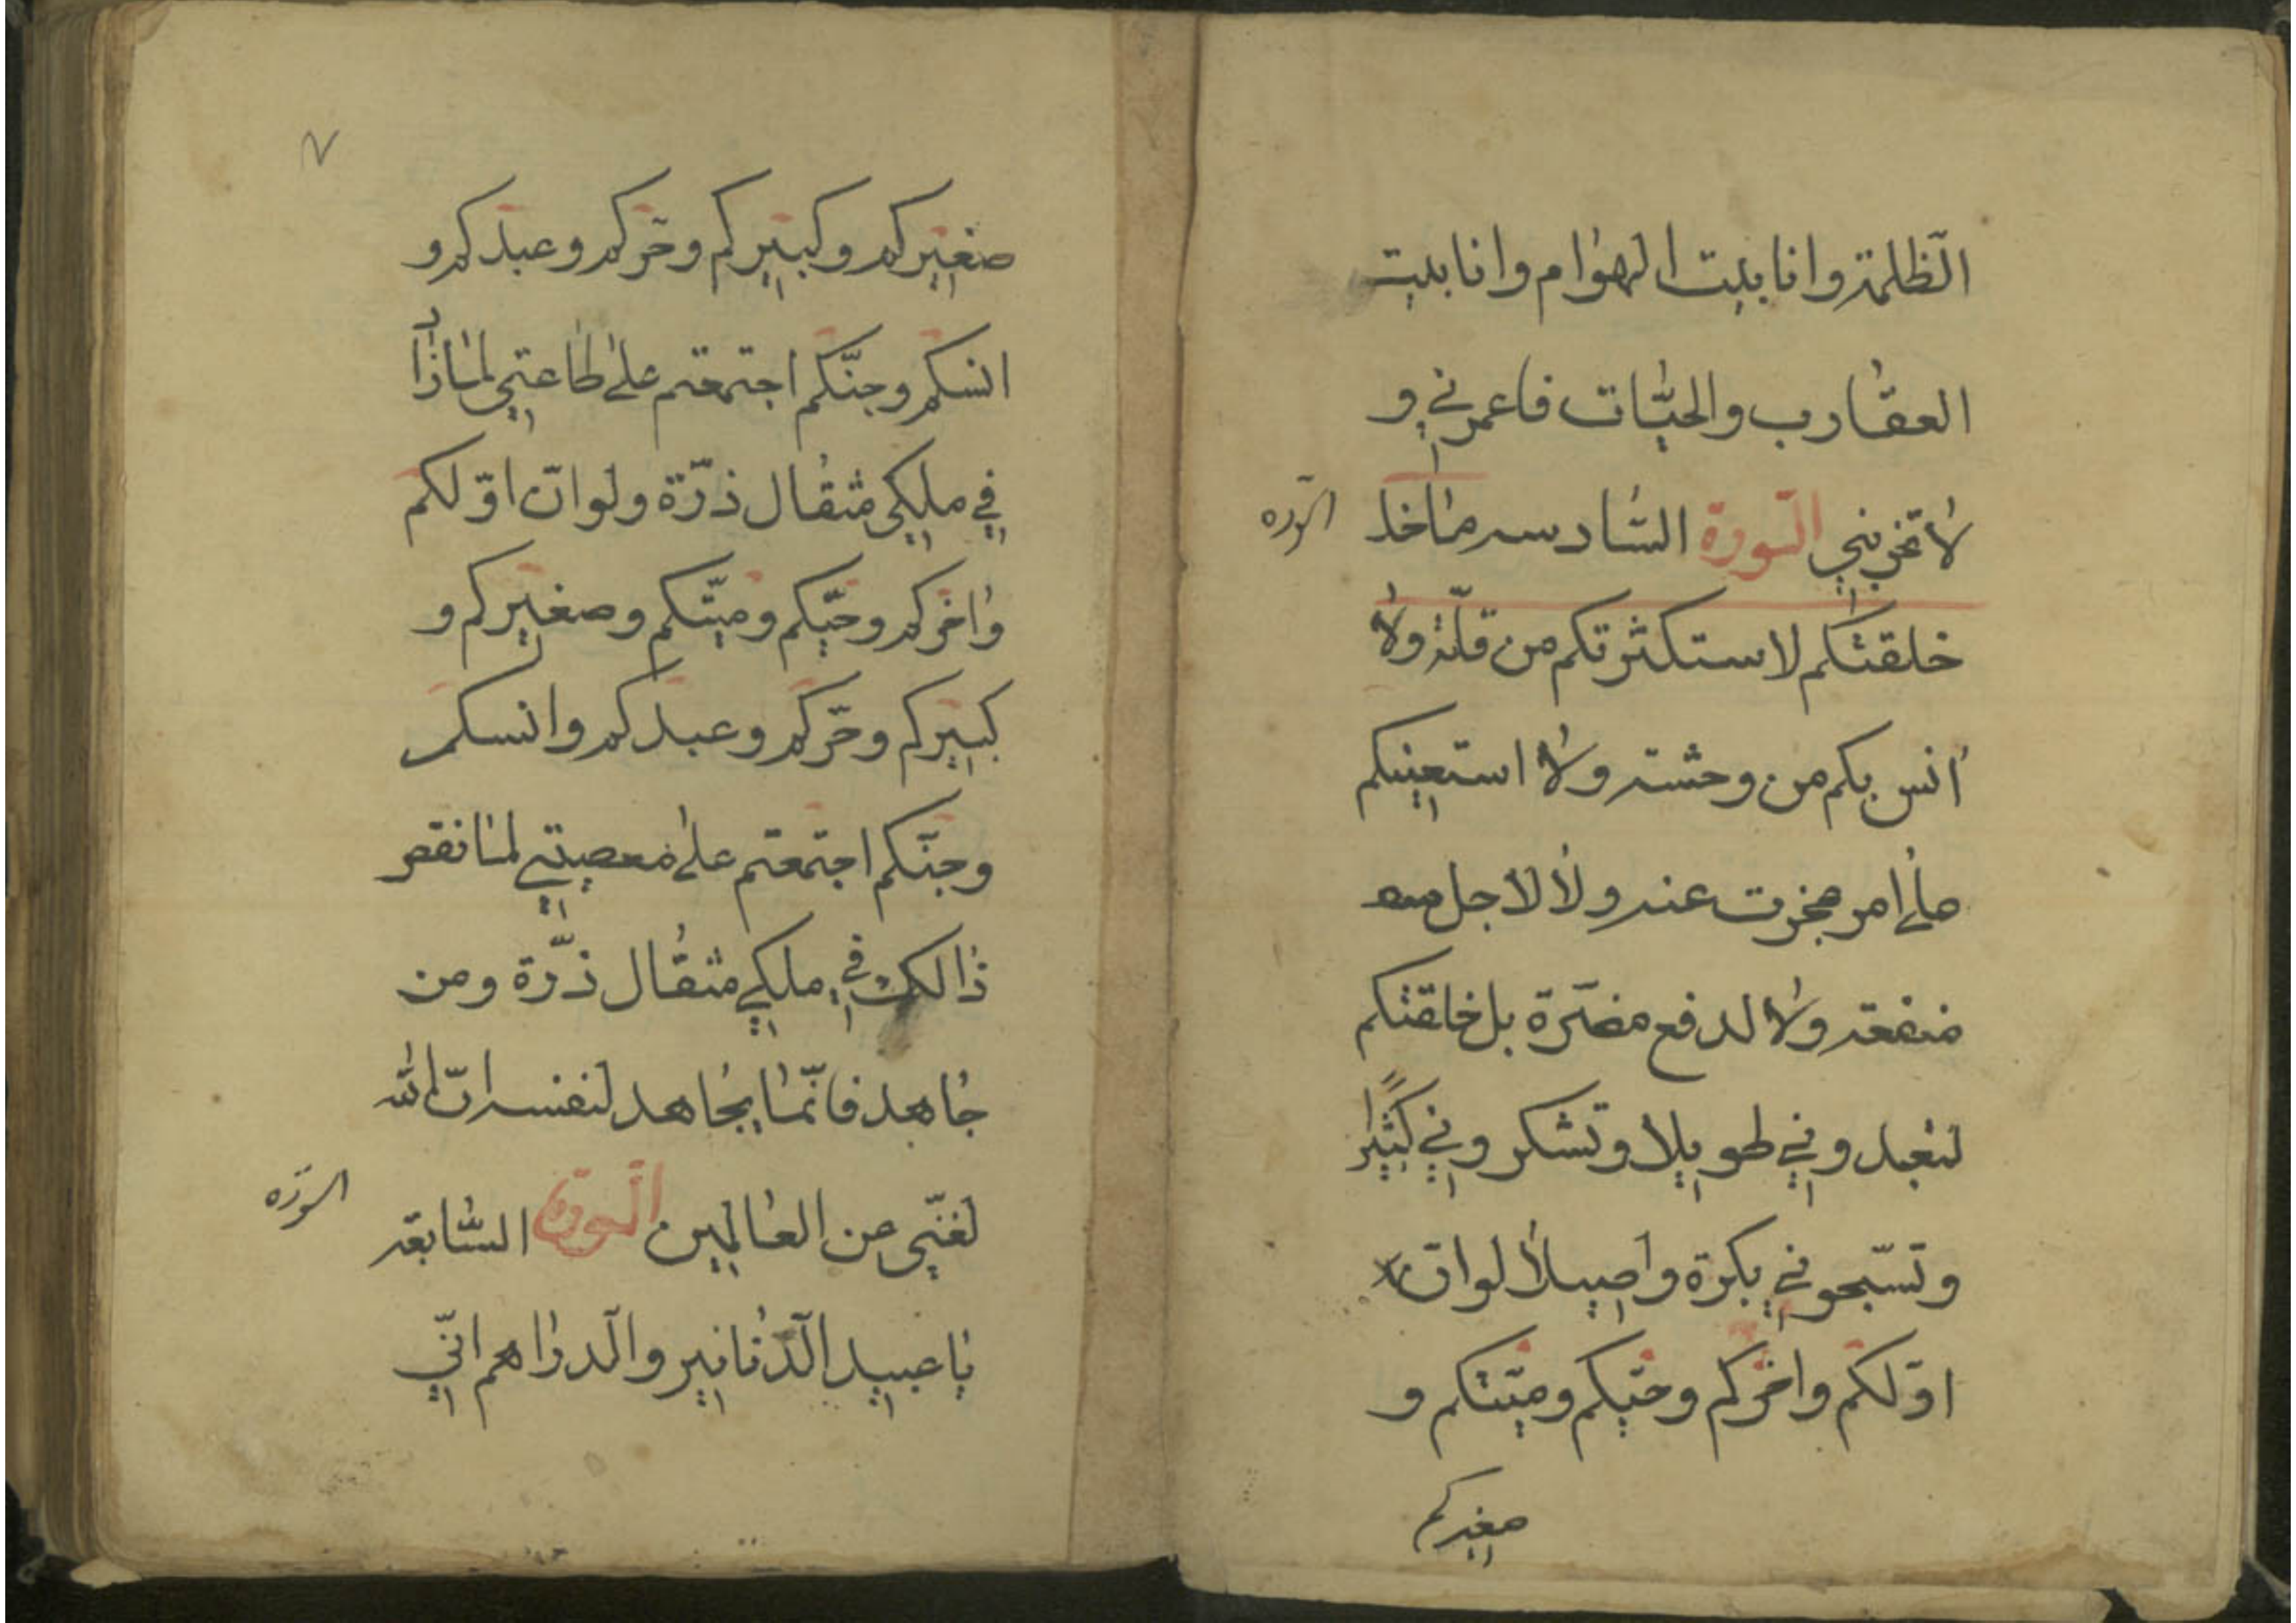 الظلمة وانا بيت الهوام وانا بيت
العقارب والحيّات فاعمرني و
لا تخربني السّورة السّادسه ما خلا
السّوره
خلقتكم لاستكثرتكم من قلّة ولا
انس بكم من وحشته ولا استعينكم
على امر عجزت عنه ولا لاجل
منفعة ولا لدفع مضرّة بل خلقتكم
لتعبدوني طويلا وتشكروني كثيرًا
وتسبّحوني بكرة واصيلا لو انّ
اوّلكم واخركم وحيّكم وميّتكم و
صغيركم
٧
صغيركم وكبيركم وحرّكم وعبدكم و
انسكم وجنّكم اجتمعتم على طاعتي لما زاد
في ملكي مثقال ذرّة ولو انّ اوّلكم
واخركم وحيّكم وميّتكم وصغيركم و
كبيركم وحرّكم وعبدكم وانسكم
وجنّكم اجتمعتم على معصيتي لما نقص
ذالك في ملكي مثقال ذرّة ومن
جاهد فانّما يجاهد لنفسه انّ الله
لغنّي عن العالمين السّورة السّابعة
السّوره
يا عبيد الدّنانير والدراهم انّي